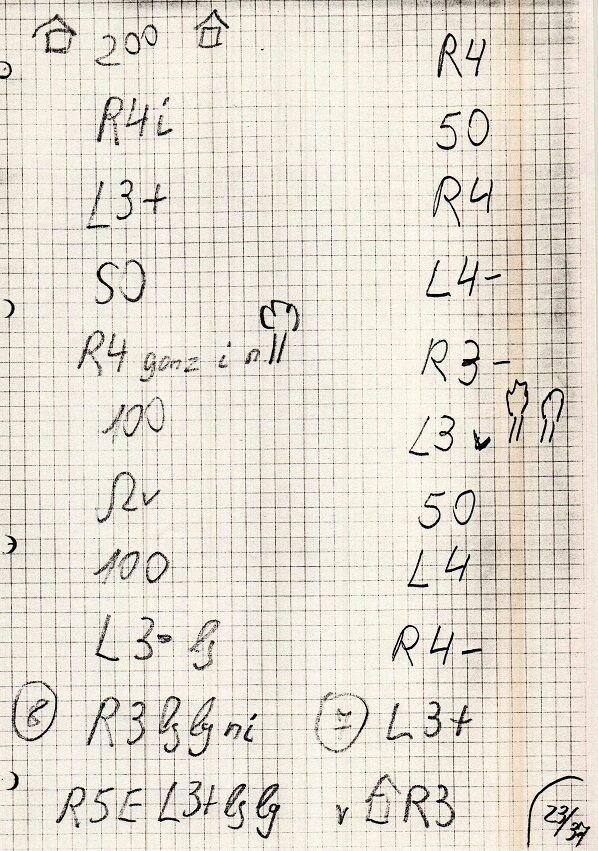 200
R4i
L3+
50
R4 ganz in
100
Ωv
100
L3- lg
8 R3 lg lg ni
R5E L3+ lg lg
R4
50
R4
L4-
R3-
L3 v
50
L4
R4-
L3+
v R3
23/37